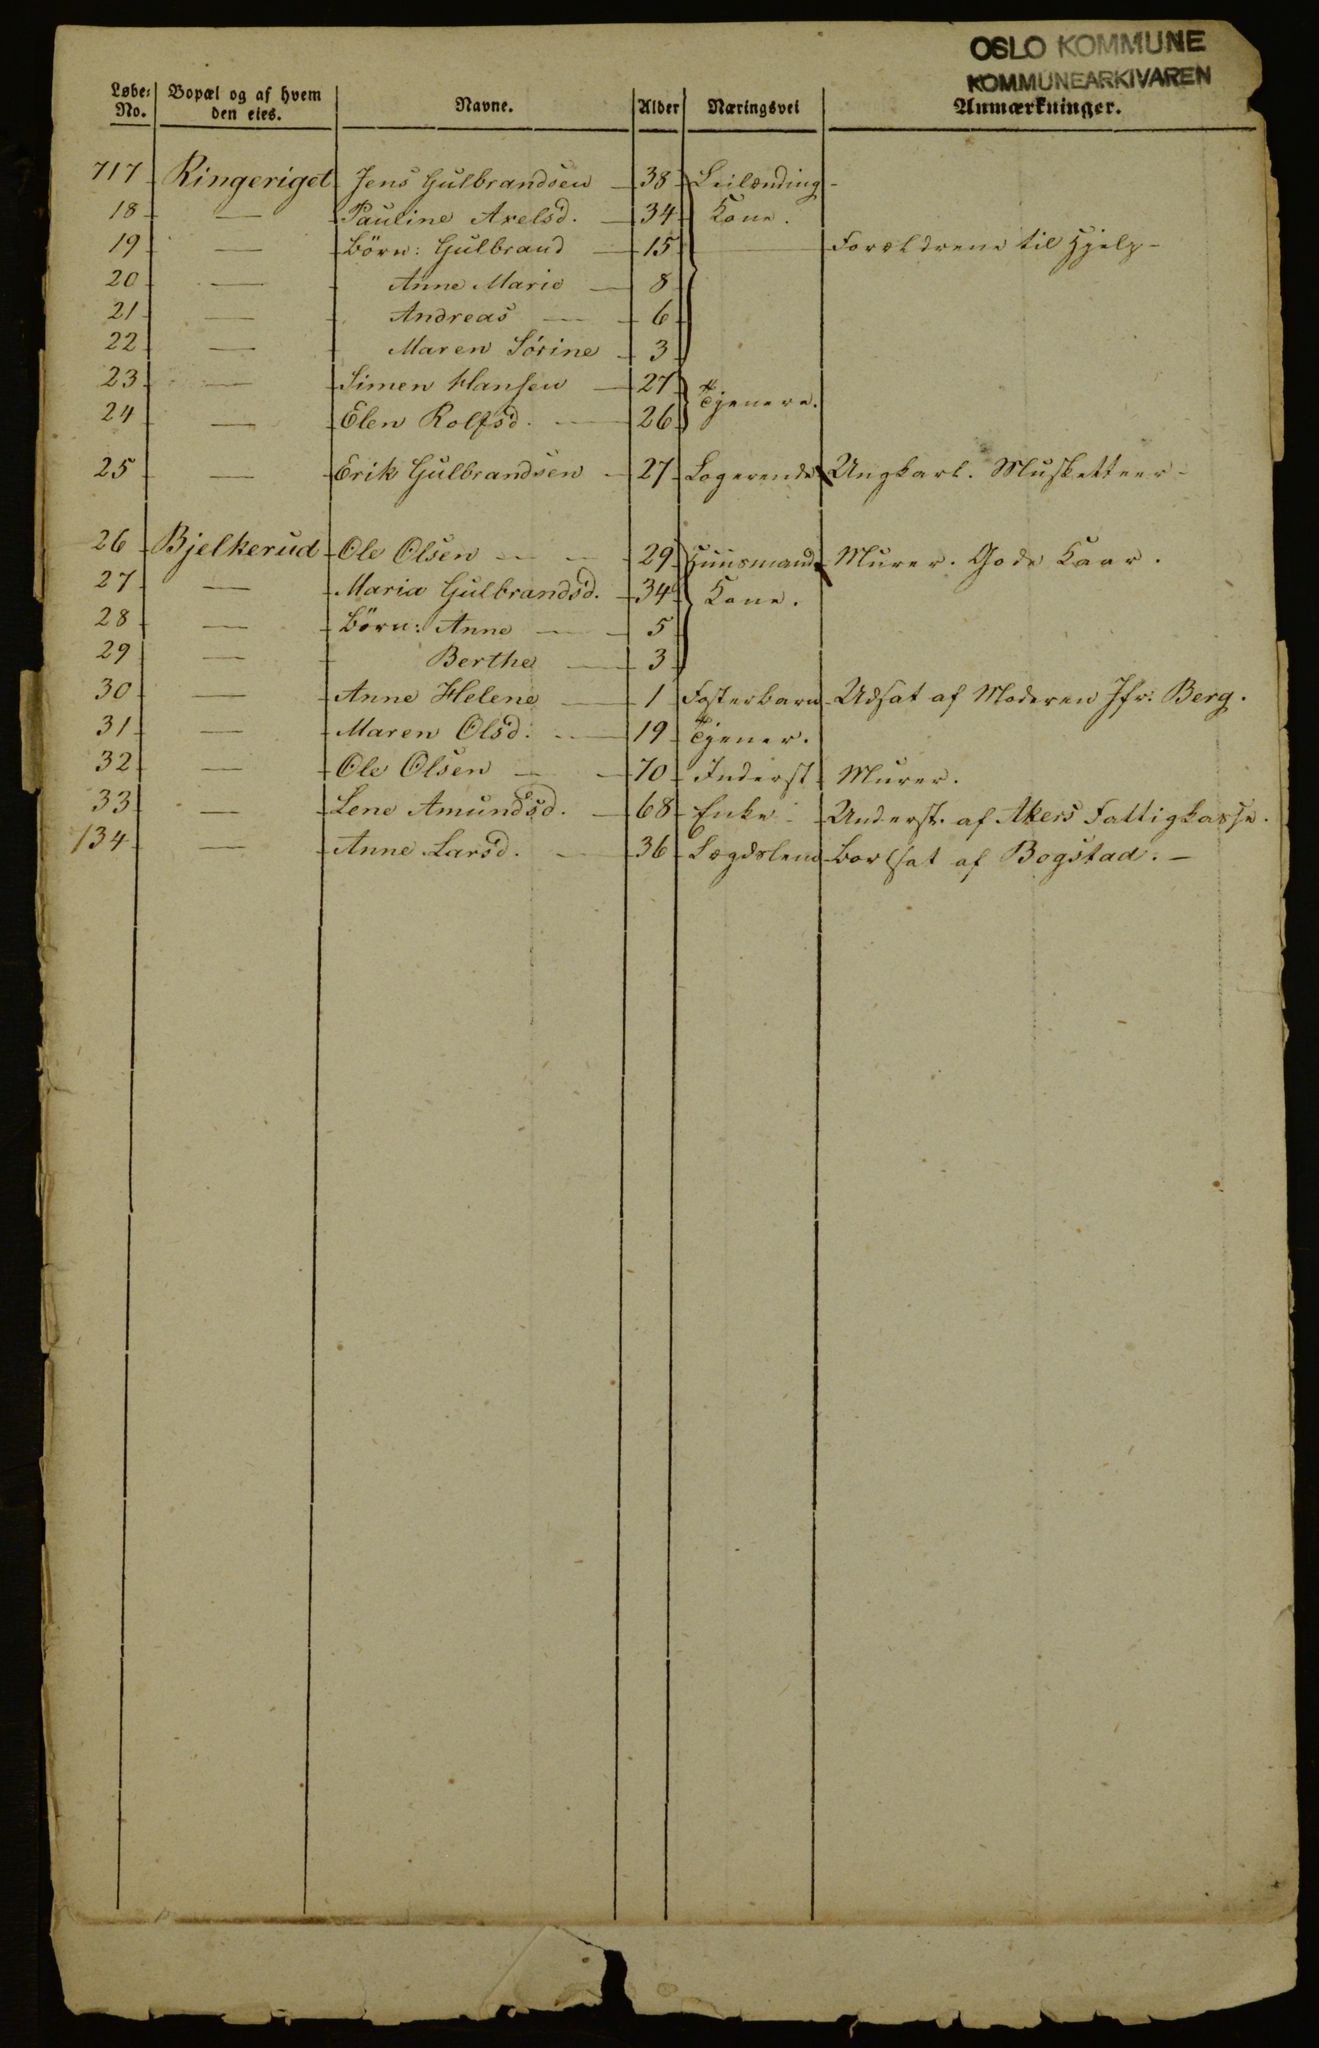 OSLO KOMMUNE
KOMMUNEARKIVAREN
Løbe= No. Bopæl og af hvem den eies. Navne. Alder Næringsvei Anmærkninger.
717 Ringeriget Jens Gulbrandsen 38 Leilænding
18 — Pauline Axelsd. 34 Kone.
19 — Börn: Gulbrand 15 — Forældrene til Hjelp
20 — Anne Marie 8
21 — Andreas 6
22 — Maren Sörine 3
23 — Simen Hansen 27 Tjenere.
24 — Elen Rolfsd. 26
25 — Erik Gulbrandsen 27 Logerende Ungkarl. Musketteer
26 Bjelkerud Ole Olsen 29 Huusmand Murer. Gode Kaar.
27 — Maria Gulbrandsd. 34 Kone.
28 — Börn: Anne 5
29 — Berthe 3
30 — Anne Helene 1 Fosterbarn Udsat af Moderen Jfr: Berg.
31 — Maren Olsd. 19 Tjener.
32 — Ole Olsen 70 Inderst Murer.
33 — Lene Amundsd. 68 Enke Underst. af Akers Fattigkasse.
134 — Anne Larsd. 36 Lægdslem Bortsat af Bogstad. —